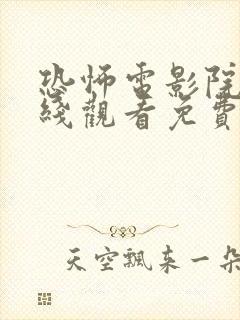 恐怖電影院
綫觀看免費
天空飄来一朵